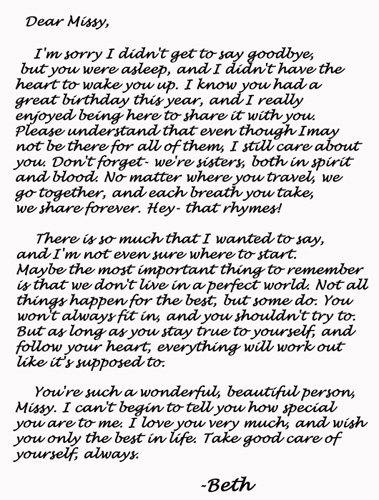 Dear Missy,
I'm sorry I didn't get to say goodbye,
but you were asleep, and I didn't have the
heart to wake you up. I know you had a
great birthday this year, and I really
enjoyed being here to share it with you.
Please understand that even though Imay
not be there for all of them, I still care about
you. Don't forget- we're sisters, both in spirit
and blood. No matter where you travel, we
go together, and each breath you take,
we share forever. Hey- that rhymes!
There is so much that I wanted to say,
and I'm not even sure where to start.
Maybe the most important thing to remember
is that we don't live in a perfect world. Not all
things happen for the best, but some do. You
won't always fit in, and you shouldn't try to.
But as long as you stay true to yourself, and
follow your heart, everything will work out
like it's supposed to.
You're such a wonderful, beautiful person,
Missy. I can't begin to tell you how special
you are to me. I love you very much, and wish
you only the best in life. Take good care of
yourself, always.
-Beth